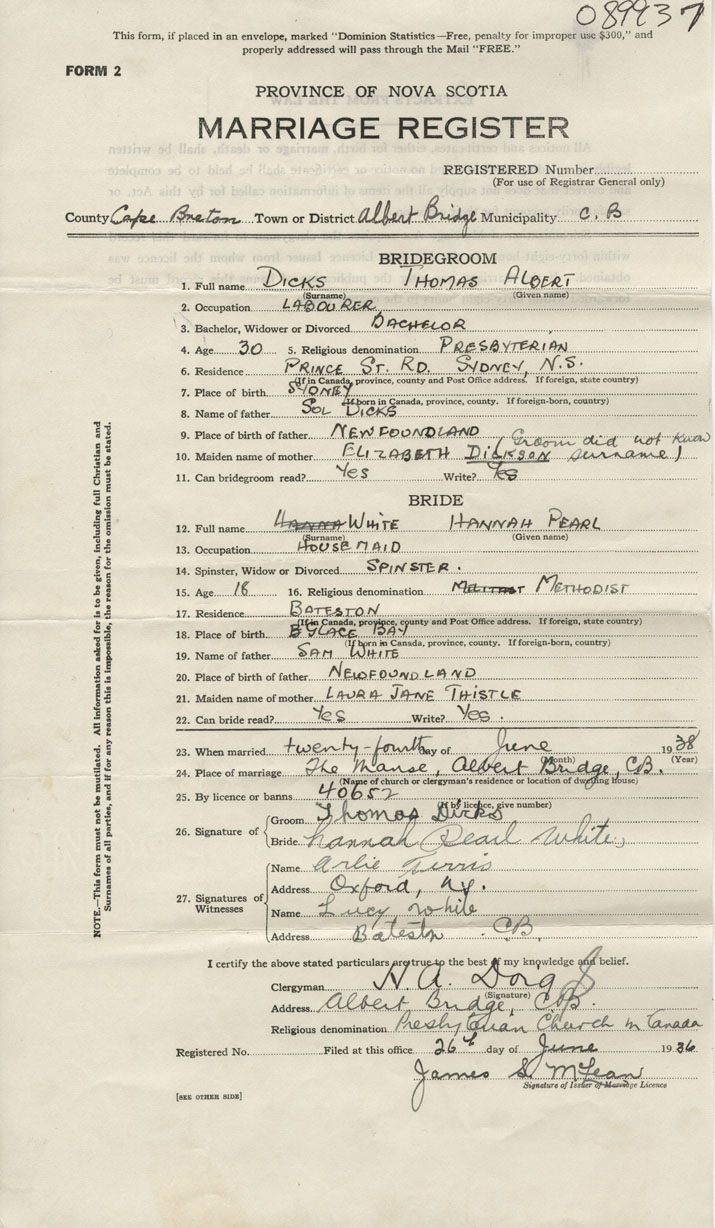 089937
This form, if placed in an envelope, marked "Dominion Statistics—Free, penalty for improper use $300," and
properly addressed will pass through the Mail "FREE."
FORM 2
PROVINCE OF NOVA SCOTIA
MARRIAGE REGISTER
REGISTERED Number
(For use of Registrar General only)
County Cape Breton Town or District Albert Bridge Municipality C. B
BRIDEGROOM
1. Full name DICKS THOMAS ALBERT
(Surname) (Given name)
2. Occupation LABOURER
3. Bachelor, Widower or Divorced BACHELOR
4. Age 30 5. Religious denomination PRESBYTERIAN
6. Residence PRINCE ST. RD. SYDNEY, N.S.
(If in Canada, province, county and Post Office address. If foreign, state country)
7. Place of birth SYDNEY
(If born in Canada, province, county. If foreign-born, country)
8. Name of father SOL DICKS
9. Place of birth of father NEWFOUNDLAND (Groom did not know
10. Maiden name of mother ELIZABETH DICKSON surname)
11. Can bridegroom read? Yes Write? Yes
BRIDE
12. Full name HANNA WHITE HANNAH PEARL
(Surname) (Given name)
13. Occupation HOUSEMAID
14. Spinster, Widow or Divorced SPINSTER.
15. Age 18 16. Religious denomination METHODIST
17. Residence BATESTON
(If in Canada, province, county and Post Office address. If foreign, state country)
18. Place of birth GLACE BAY
(If born in Canada, province, county. If foreign-born, country)
19. Name of father SAM WHITE
20. Place of birth of father NEWFOUNDLAND
21. Maiden name of mother LAURA JANE THISTLE
22. Can bride read? Yes Write? Yes.
23. When married twenty-fourth day of June 1938
(Month) (Year)
24. Place of marriage The Manse, Albert Bridge, CB.
(Name of church or clergyman's residence or location of dwelling house)
25. By licence or banns 40652
(If by licence, give number)
26. Signature of Groom Thomas Dicks
Bride Hannah Pearl White
27. Signatures of Witnesses
Name Arlie Ferris
Address Oxford, N.S.
Name Lucy White
Address Bateston CB
I certify the above stated particulars are true to the best of my knowledge and belief.
Clergyman N. A.
(Signature)
Address Albert Bridge, C.B.
Religious denomination Presbyterian Church in Canada
Registered No. Filed at this office 26th day of June 1936
James S. McLean
Signature of Issuer of Marriage Licence
[SEE OTHER SIDE]
NOTE.—This form must not be mutilated. All information asked for is to be given, including full Christian and
Surnames of all parties, and if for any reason this is impossible, the reason for the omission must be stated.